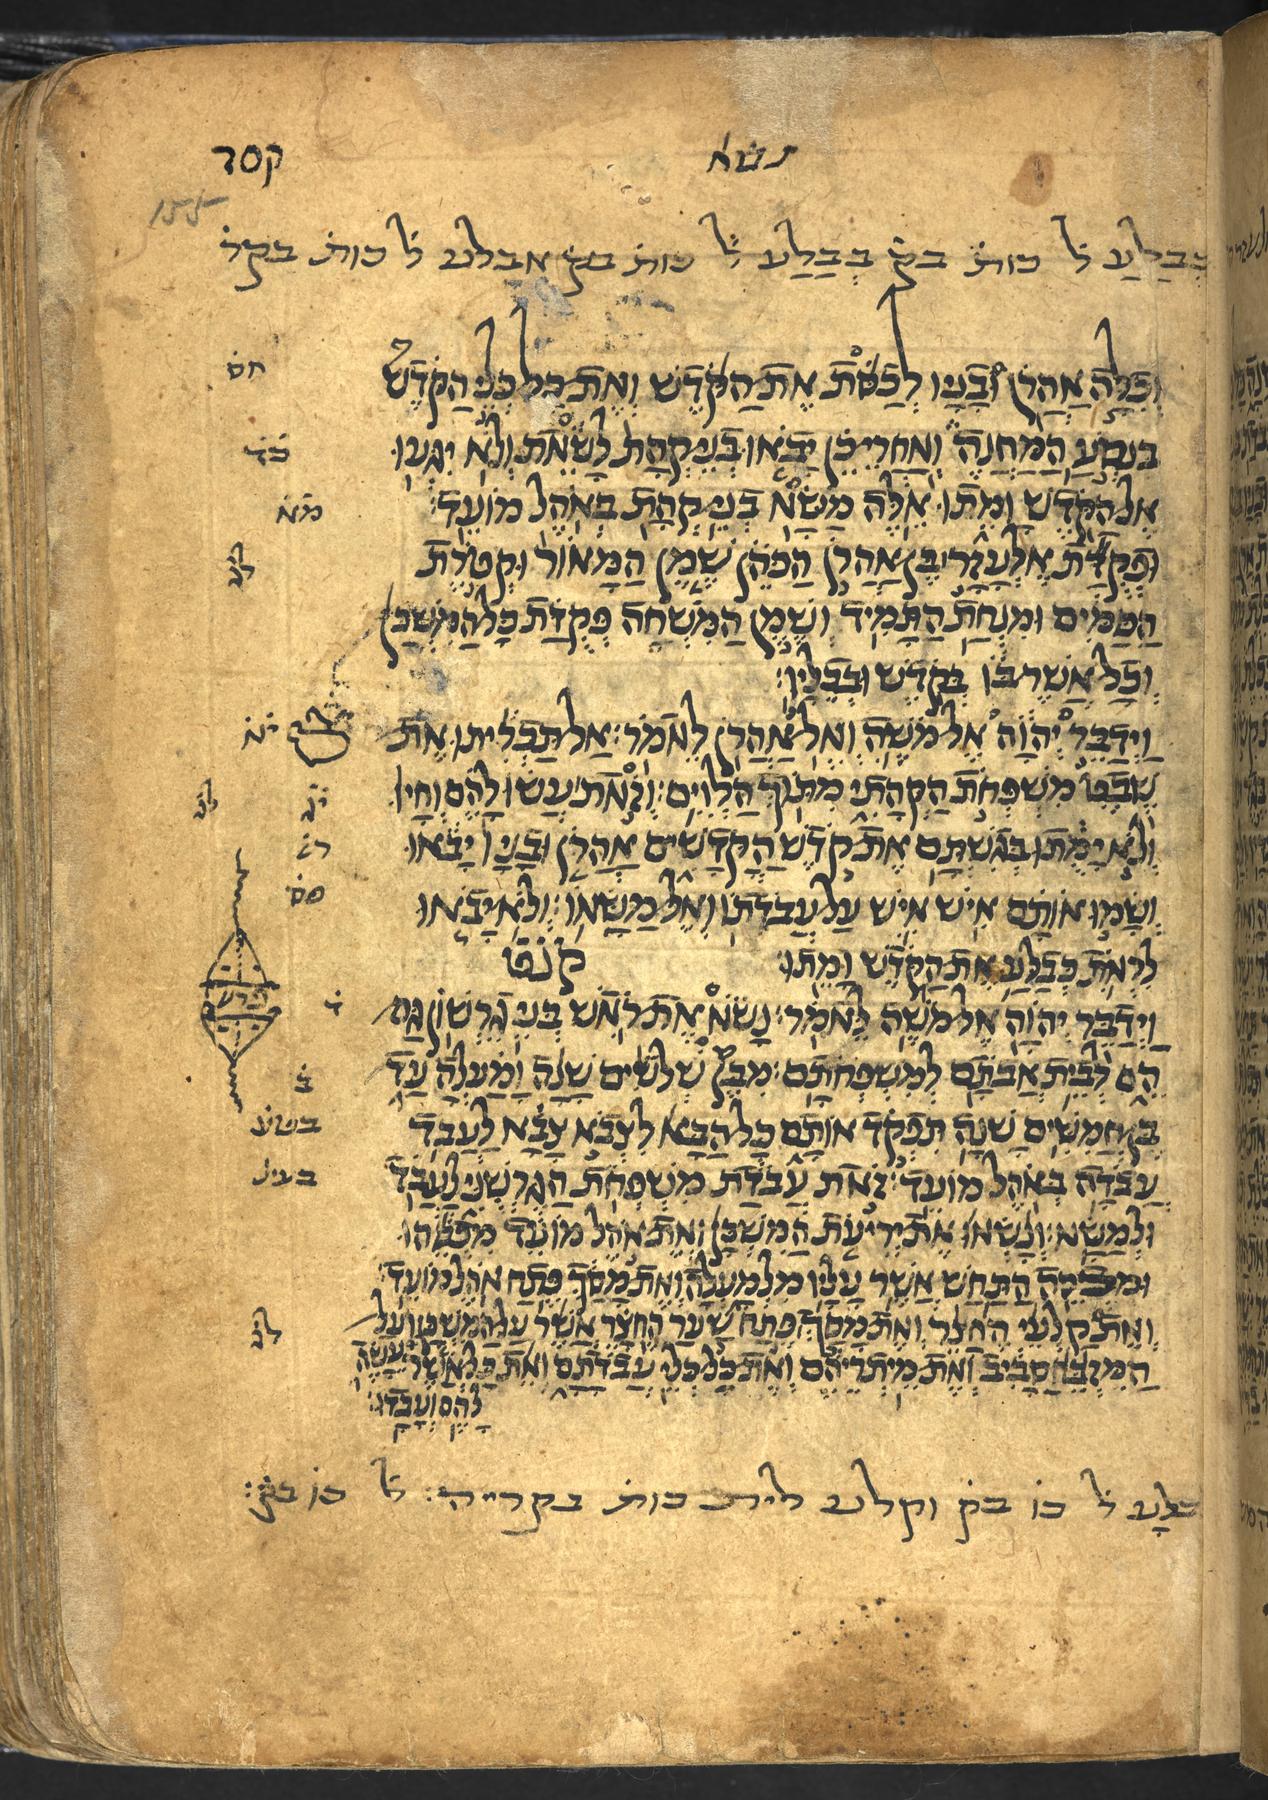 קסד
נשא
155
כְּבַלַּע ל כות בק בְּבַלַּע ל כות בק אבלע ל כות בקר
וְכִלָּה אַהֲרֹן וּבָנָיו לְכַסֹּת אֶת הַקֹּדֶשׁ וְאֶת כָּל כְּלֵי הַקֹּדֶשׁ
בִּנְסֹעַ הַמַּחֲנֶה וְאַחֲרֵי כֵן יָבֹאוּ בְנֵי קְהָת לָשֵׂאת וְלֹא יִגְּעוּ
אֶל הַקֹּדֶשׁ וָמֵתוּ אֵלֶּה מַשָּׂא בְנֵי קְהָת בְּאֹהֶל מוֹעֵד׃
וּפְקֻדַּת אֶלְעָזָר בֶּן אַהֲרֹן הַכֹּהֵן שֶׁמֶן הַמָּאוֹר וּקְטֹרֶת
הַסַּמִּים וּמִנְחַת הַתָּמִיד וְשֶׁמֶן הַמִּשְׁחָה פְּקֻדַּת כָּל הַמִּשְׁכָּן
וְכָל אֲשֶׁר בּוֹ בְּקֹדֶשׁ וּבְכֵלָיו׃
וַיְדַבֵּר יְהוָה אֶל מֹשֶׁה וְאֶל אַהֲרֹן לֵאמֹר׃ אַל תַּכְרִיתוּ אֶת
שֵׁבֶט מִשְׁפְּחֹת הַקְּהָתִי מִתּוֹךְ הַלְוִיִּם׃ וְזֹאת עֲשׂוּ לָהֶם וְחָיוּ
וְלֹא יָמֻתוּ בְּגִשְׁתָּם אֶת קֹדֶשׁ הַקֳּדָשִׁים אַהֲרֹן וּבָנָיו יָבֹאוּ
וְשָׂמוּ אוֹתָם אִישׁ אִישׁ עַל עֲבֹדָתוֹ וְאֶל מַשָּׂאוֹ׃ וְלֹא יָבֹאוּ
לִרְאוֹת כְּבַלַּע אֶת הַקֹּדֶשׁ וָמֵתוּ׃ קנט
וַיְדַבֵּר יְהוָה אֶל מֹשֶׁה לֵּאמֹר׃ נָשֹׂא אֶת רֹאשׁ בְּנֵי גֵרְשׁוֹן גַּם
הֵם לְבֵית אֲבֹתָם לְמִשְׁפְּחֹתָם׃ מִבֶּן שְׁלֹשִׁים שָׁנָה וָמַעְלָה עַד
בֶּן חֲמִשִּׁים שָׁנָה תִּפְקֹד אוֹתָם כָּל הַבָּא לִצְבֹא צָבָא לַעֲבֹד
עֲבֹדָה בְּאֹהֶל מוֹעֵד׃ זֹאת עֲבֹדַת מִשְׁפְּחֹת הַגֵּרְשֻׁנִּי לַעֲבֹד
וּלְמַשָּׂא׃ וְנָשְׂאוּ אֶת יְרִיעֹת הַמִּשְׁכָּן וְאֶת אֹהֶל מוֹעֵד מִכְסֵהוּ
וּמִכְסֵה הַתַּחַשׁ אֲשֶׁר עָלָיו מִלְמָעְלָה וְאֶת מָסַךְ פֶּתַח אֹהֶל מוֹעֵד׃
וְאֵת קַלְעֵי הֶחָצֵר וְאֶת מָסַךְ פֶּתַח שַׁעַר הֶחָצֵר אֲשֶׁר עַל הַמִּשְׁכָּן וְעַל
הַמִּזְבֵּחַ סָבִיב וְאֵת מֵיתְרֵיהֶם וְאֶת כָּל כְּלֵי עֲבֹדָתָם וְאֵת כָּל אֲשֶׁר יֵעָשֶׂה
לָהֶם וְעָבָדוּ׃
חס
כד
מא
יא
יג
ד
ב
בטע
בעיל
פרש
כבלַע ל כו בק וקלע לית כות בקרייה׃ ל כו בק׃